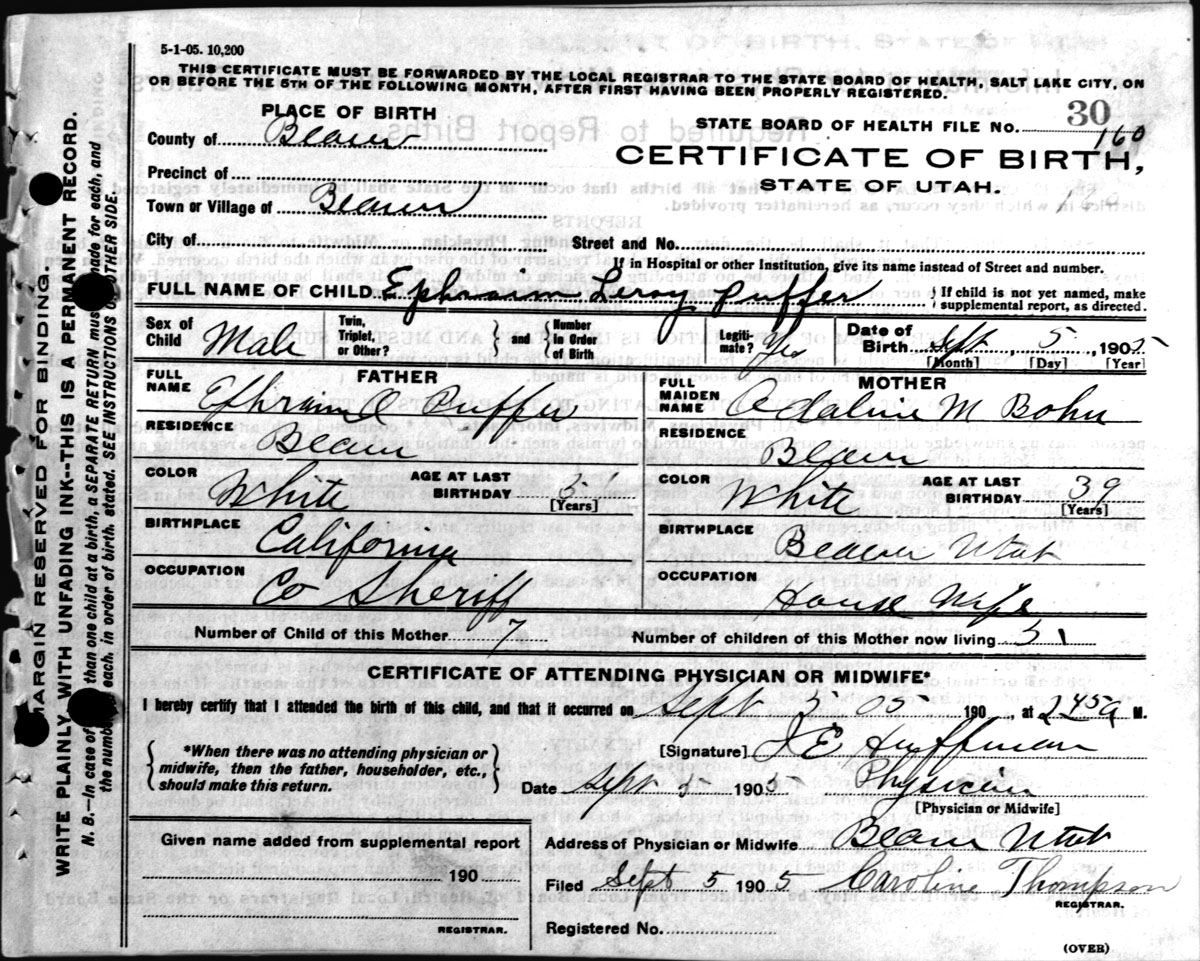 5-1-05. 10,200
THIS CERTIFICATE MUST BE FORWARDED BY THE LOCAL REGISTRAR TO THE STATE BOARD OF HEALTH, SALT LAKE CITY, ON
OR BEFORE THE 5TH OF THE FOLLOWING MONTH, AFTER FIRST HAVING BEEN PROPERLY REGISTERED.
PLACE OF BIRTH
County of Beaver
Precinct of
Town or Village of Beaver
STATE BOARD OF HEALTH FILE NO. 30
160
CERTIFICATE OF BIRTH,
STATE OF UTAH.
City of Street and No.
If in Hospital or other Institution, give its name instead of Street and number.
FULL NAME OF CHILD Ephraim Leroy Puffer } If child is not yet named, make supplemental report, as directed.
Sex of Child Male Twin, Triplet, or Other? } and { Number In Order of Birth Legitimate? Yes Date of Birth Sept, 5, 1905
[Month] [Day] [Year]
FATHER
FULL NAME Ephram Puffer
RESIDENCE Beaver
COLOR White AGE AT LAST BIRTHDAY [Years]
BIRTHPLACE California
OCCUPATION Co Sheriff
MOTHER
FULL MAIDEN NAME Adaline M Bohn
RESIDENCE Beaver
COLOR White AGE AT LAST BIRTHDAY 39 [Years]
BIRTHPLACE Beaver Utah
OCCUPATION House Wife
Number of Child of this Mother 7 Number of children of this Mother now living 5
CERTIFICATE OF ATTENDING PHYSICIAN OR MIDWIFE*
I hereby certify that I attended the birth of this child, and that it occurred on Sept 5 05 190 , at 2 45 a M.
{ *When there was no attending physician or midwife, then the father, householder, etc., should make this return. }
[Signature] J E Huffman
Date Sept 5 1905 Physician
[Physician or Midwife]
Given name added from supplemental report
190
REGISTRAR.
Address of Physician or Midwife Beaver Utah
Filed Sept 5 1905 Caroline Thompson
REGISTRAR.
Registered No.
(OVER)
MARGIN RESERVED FOR BINDING.
WRITE PLAINLY WITH UNFADING INK--THIS IS A PERMANENT RECORD.
N. B.--In case of than one child at a birth, a SEPARATE RETURN must made for each, and
the number each, in order of birth, stated. SEE INSTRUCTIONS OTHER SIDE.